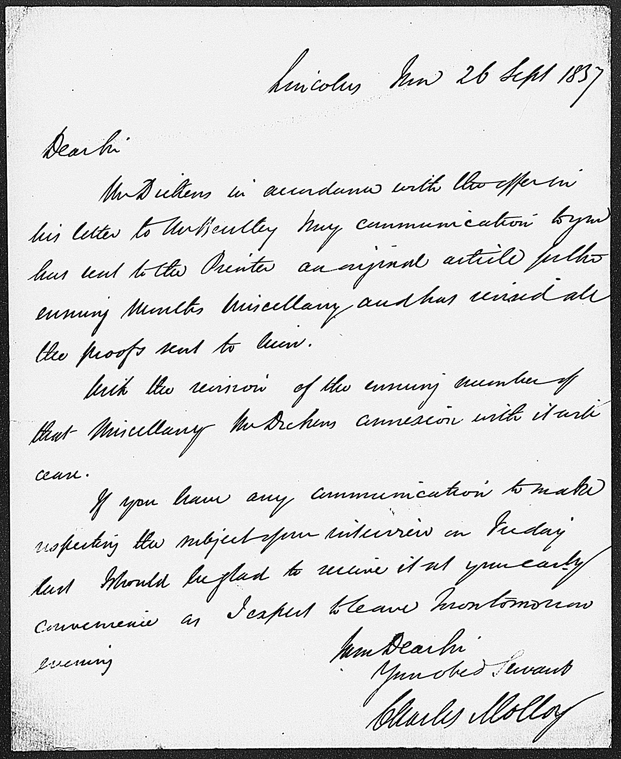 Lincolns Inn 26 Sept 1837
Dear Sir
Mr Dickens in accordance with the offer in
his letter to Mr Bentley & my communication to you
has sent to the Printer an original article for the
ensuing Months Miscellany and has revised all
the proofs sent to him.
With the revision of the ensuing number of
that Miscellany Mr Dickens connexion with it will
cease.
If you have any communication to make
respecting the subject of our interview on Friday
last I should be glad to receive it at your early
convenience as I expect to leave Town tomorrow
evening
I am Dear Sir
Your obed Servant
Charles Molloy